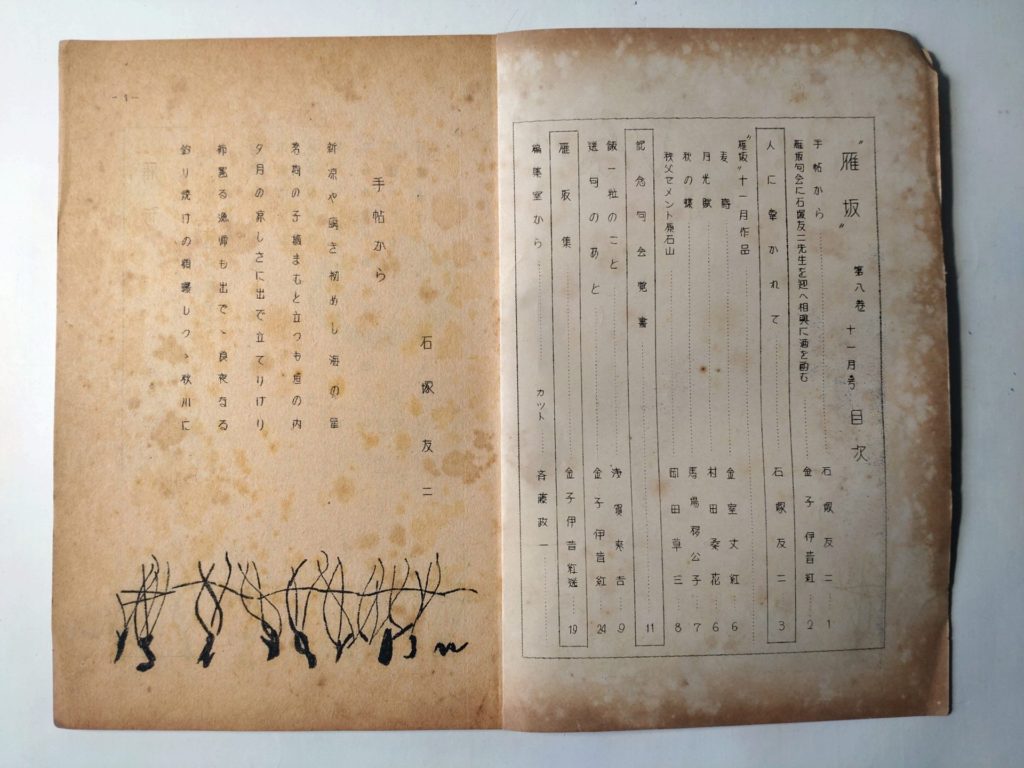 "雁坂" 第八巻 十一月号 目次
手帖から 石塚友二 1
雁坂句会に石塚友二先生を迎へ相興に酒を酌む 金子伊昔紅 2
人に牽かれて 石塚友二 3
"雁坂"十一月作品
麦 金室丈紅 6
月光 村田奏花 6
秋の蝶 馬場移公子 7
秩父セメント 石山 田草三 8
記念句会覚書 11
飯一粒のこと 9
選句のあと 金子伊昔紅 24
雁坂集 金子伊昔紅選 19
編集室から
カット 斉藤政一
- 1 -
手帖から
石塚友二
新涼や病き初めし海の
の子摘まむと立つも垣の内
夕月の涼しさに出で立てりけり
る漁師も出で、良夜なる
釣り焼けの頬曝しつゝ秋川に